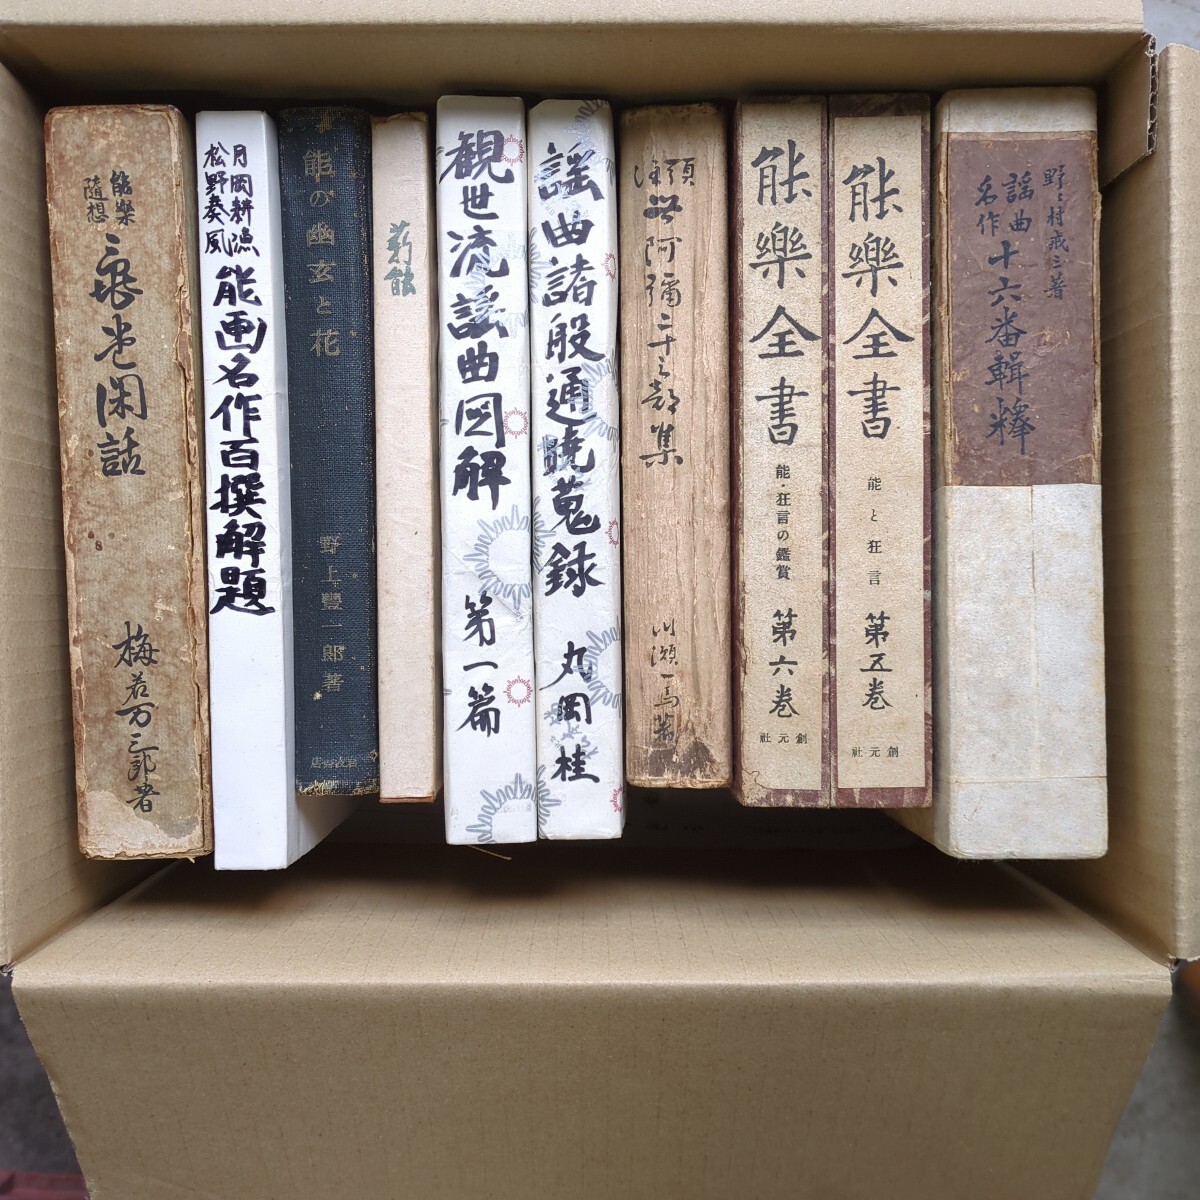 能樂
隨想
亀堂閑話
梅若万三郎著
月岡耕漁
松野奏風
能画名作百撰解題
能の幽玄と花
野上豐一郎著
岩波書店
薪能
観世流謡曲図解
第一篇
謡曲諸般通暁蒐録
丸岡桂
頭註世阿彌二十三部集
川瀬一馬著
能樂全書
能・狂言の鑑賞
第六巻
創元社
能樂全書
能と狂言
第五巻
創元社
野々村戒三著
謡曲
名作
十六番輯釋